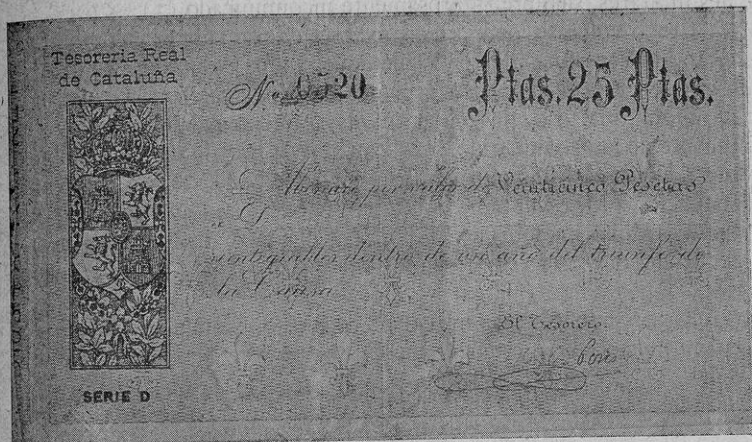 Tesoreria Real
de Cataluña
No. 0520
Ptas. 25 Ptas.
Abonaré por valor de Veinticinco Pesetas
a D
reintegrables dentro de un año del triunfo de
la Causa
El Tesorero.
SERIE D